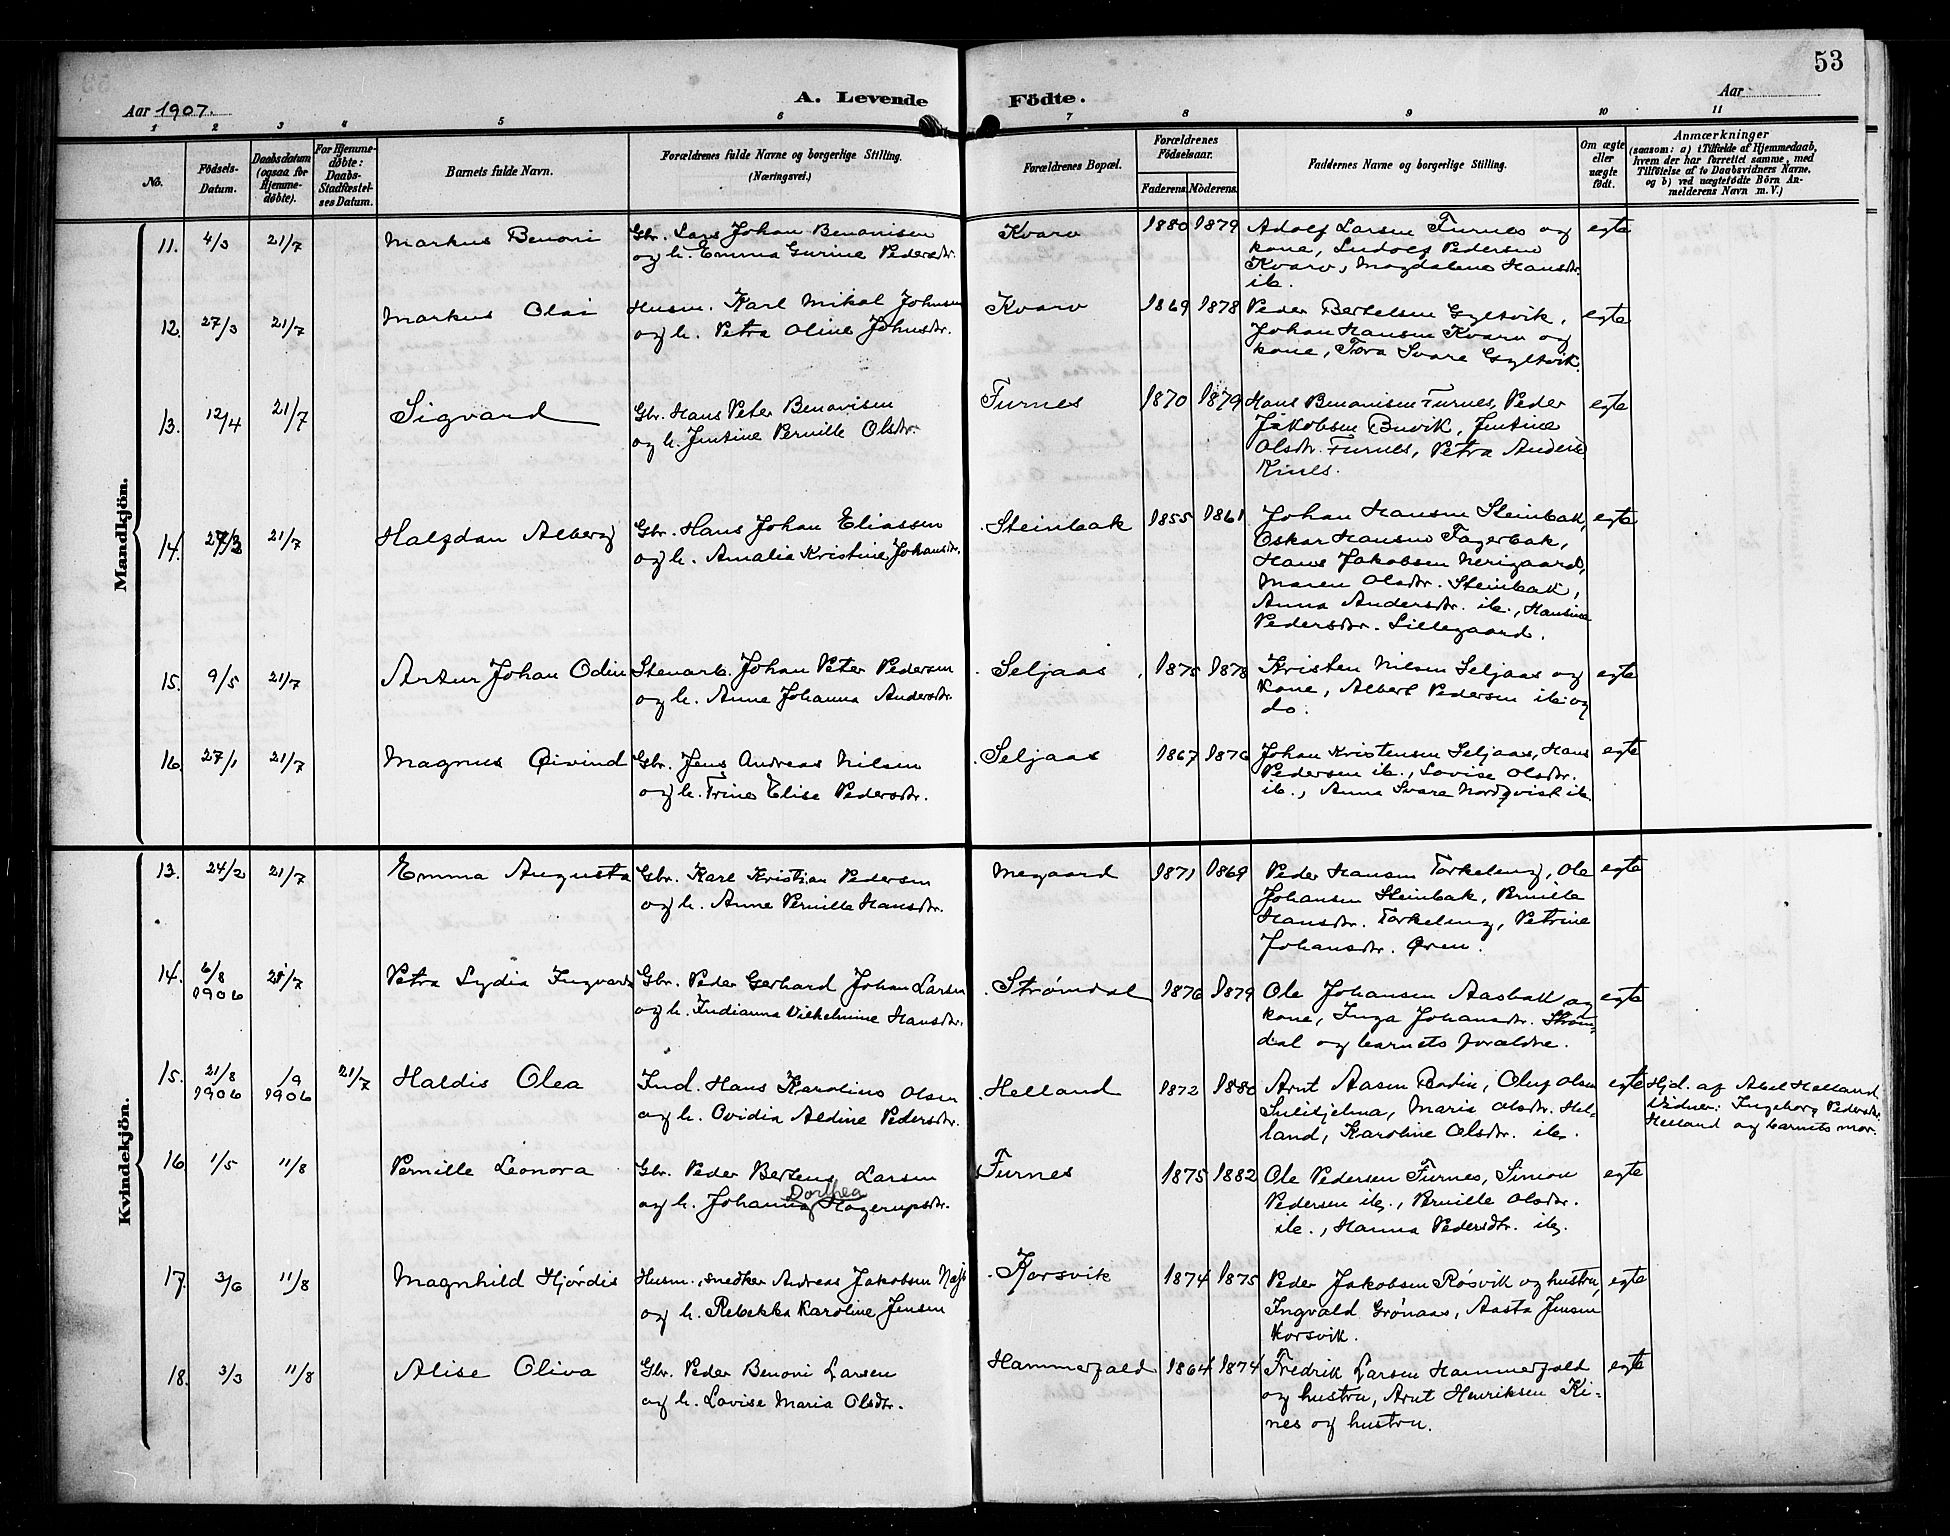 53
Aar 1907.
A. Levende Födte.
Aar
1 2 3 4 5 6 7 8 9 10 11
No.
Födsels-Datum.
Daabsdatum (ogsaa for Hjemme-döbte).
For Hjemme-døbte: Daabs-Stadfæstel-ses Datum.
Barnets fulde Navn.
Forældrenes fulde Navne og borgerlige Stilling. (Næringsvei.)
Forældrenes Bopæl.
Forældrenes Födselsaar.
Faderens. Möderens.
Faddernes Navne og borgerlige Stilling.
Om ægte eller uægte födt.
Anmærkninger (saasom: a) i Tilfælde af Hjemmedaab, hvem der har forrettet samme, med Tilföielse af to Daabsvidners Navne, og b) ved uægtefödte Börn Anmelderens Navn m. V.)
Mandkjön.
11. 4/3 21/7 Markus Benoni Gbr. Lars Johan Benonisen Kvarv 1880 1879 Adolf Larsen Furnes og egte
og h. Emma Gurine Pedersdtr. kone, Ludolf Pedersen
Kvarv, Magdalene Hansdtr.
ib.
12. 27/3 21/7 Markus Olai Husm. Karl Mikal Johnsen Kvarv 1869 1878 Peder Bertelsen Gyltvik, egte
og h. Petra Oline Johnsdtr. Johan Hansen Kvarv og
kone, Tora Svare Gyltvik.
13. 12/4 21/7 Sigvard Gbr. Hans Peter Benonisen Furnes 1870 1879 Hans Benonisen Furnes, Peder egte
og h. Jentine Pernille Olsdtr. Jakobsen Buvik, Jentine
Olsdtr. Furnes, Petra
Kines.
14. 21/7 Halfdan Alberg Gbr. Hans Johan Eliassen Steinbak 1855 1861 Johan Hansen Steinbakk, egte
og h. Amalia Kristine Johansdtr. Oskar Hansen Fagerbak,
Hans Jakobsen Nerigaard,
Maren Olsdtr. Steinbakk,
Anna Andersdtr. ib., Hansine
Pedersdtr. Lillegaard.
15. 9/5 21/7 Artur Johan Odin Stenarb. Johan Peter Pedersen Seljaas 1875 1878 Kristen Nilsen Seljaas og egte
og h. Anne Johanna Andersdtr. kone, Albert Pedersen ib. og
do.
16. 27/1 21/7 Magnus Øivind Gbr. Jens Andreas Nilsen Seljaas 1867 1876 Johan Kristensen Seljaas, Hans egte
og h. Trine Elise Pedersdtr. Pedersen ib., Lovise Olsdtr.
ib., Anna Svare Nordqvist ib.
Kvindekjön.
13. 24/2 21/7 Emma Augusta Gbr. Karl Kristian Pedersen Megaard 1871 1869 Peder Hansen Torkeleng, Ole egte
og h. Anne Pernille Hansdtr. Johansen Steinbak, Pernille
Hansdtr. Torkeleng, Petrine
Johansdtr. Øren.
14. 6/8 1906 21/7 Petra Lydia Ingvarda Gbr. Peder Gerhard Johan Larsen Strømdal 1876 1879 Ole Johansen Aasbakk og egte
og h. Indianna Vilhelmine Hansdtr. kone, Inga Johansdtr. Strøm-
dal og barnets forældre.
15. 21/8 1906 1/9 1906 21/7 Haldis Olea Ind. Hans Karolius Olsen Helland 1872 1880 Arnt Aasen Bodin, Oluf Olsen egte Hjd. af Abel Helland
og h. Ovidia Aldine Pedersdtr. Sulitjelma, Maria Olsdtr. Hel- Vidner: Ingeborg Pedersdtr.
land, Karoline Olsdtr. ib. Helland og barnets mor.
16. 1/5 11/8 Pernille Leonora Gbr. Peder Bertens Larsen Furnes 1875 1882 Ole Pedersen Furnes, Simon egte
Dorthea
og h. Johanna Hagerupsdtr. Pedersen ib., Pernille Olsdtr.
ib., Hanna Pedersdtr. ib.
17. 3/6 11/8 Magnhild Hjørdis Husm., snedker Andreas Jakobsen Korsvik 1874 1875 Peder Jakobsen Røsvik og hustru, egte
og h. Rebekka Karoline Jensen Ingvald Grønaas, Aasta Jensen
Korsvik.
18. 3/3 11/8 Alise Oliva Gbr. Peder Benoni Larsen Hammerfald 1864 1874 Fredrik Larsen Hammerfald egte
og h. Lovise Maria Olsdtr. og hustru, Arnt Henriksen Ki-
nes og hustru.